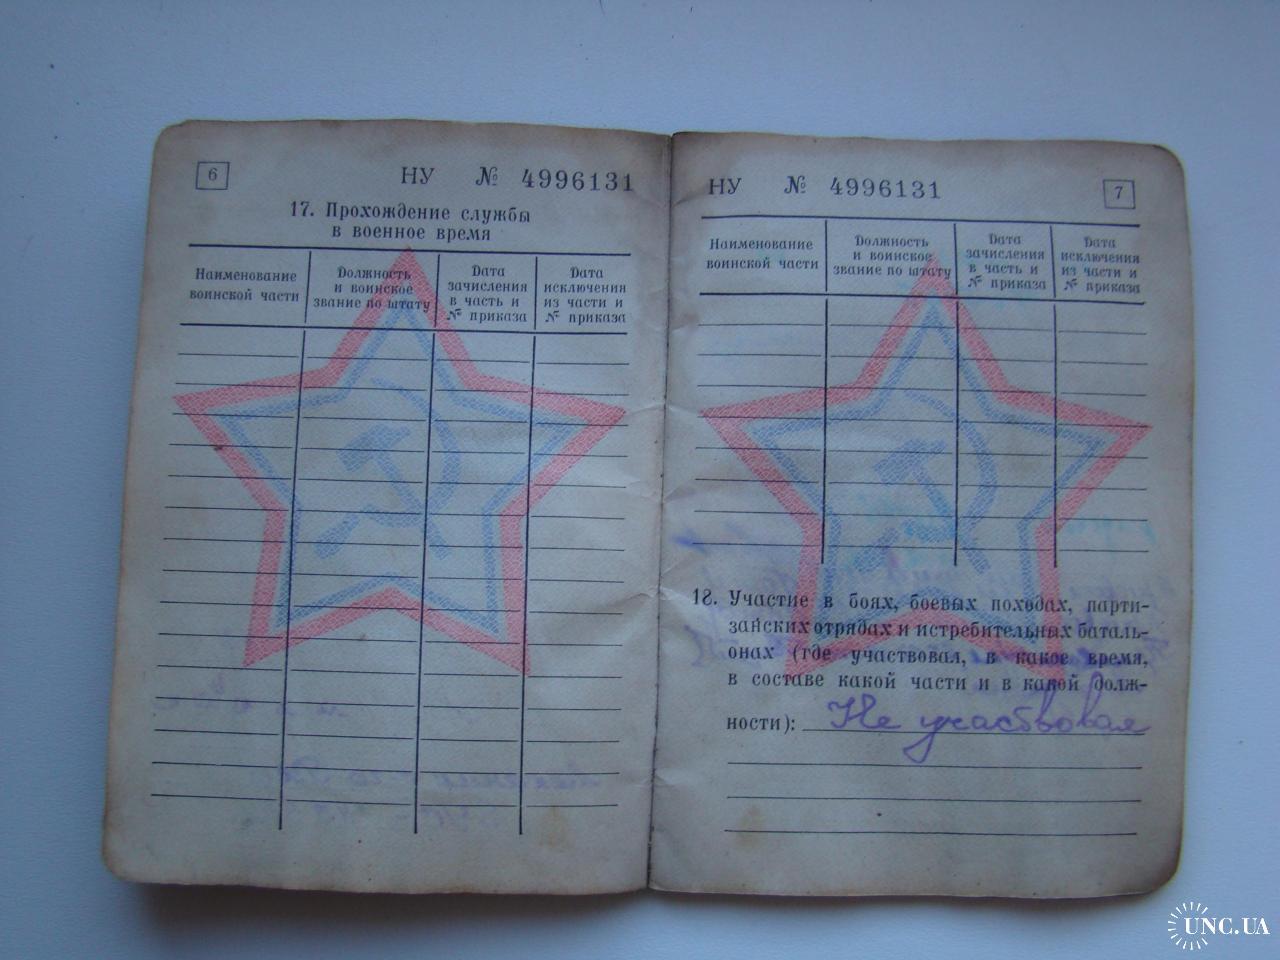 6
НУ № 4996131
17. Прохождение службы
в военное время
Наименование
воинской части
Должность
и воинское
звание по штату
Дата
зачисления
в часть и
№ приказа
Дата
исключения
из части и
№ приказа
НУ № 4996131
7
Наименование
воинской части
Должность
и воинское
звание по штату
Дата
зачисления
в часть и
№ приказа
Дата
исключения
из части и
№ приказа
18. Участие в боях, боевых походах, парти-
занских отрядах и истребительных баталь-
онах (где участвовал, в какое время,
в составе какой части и в какой долж-
ности): Не участвовал
UNC.UA